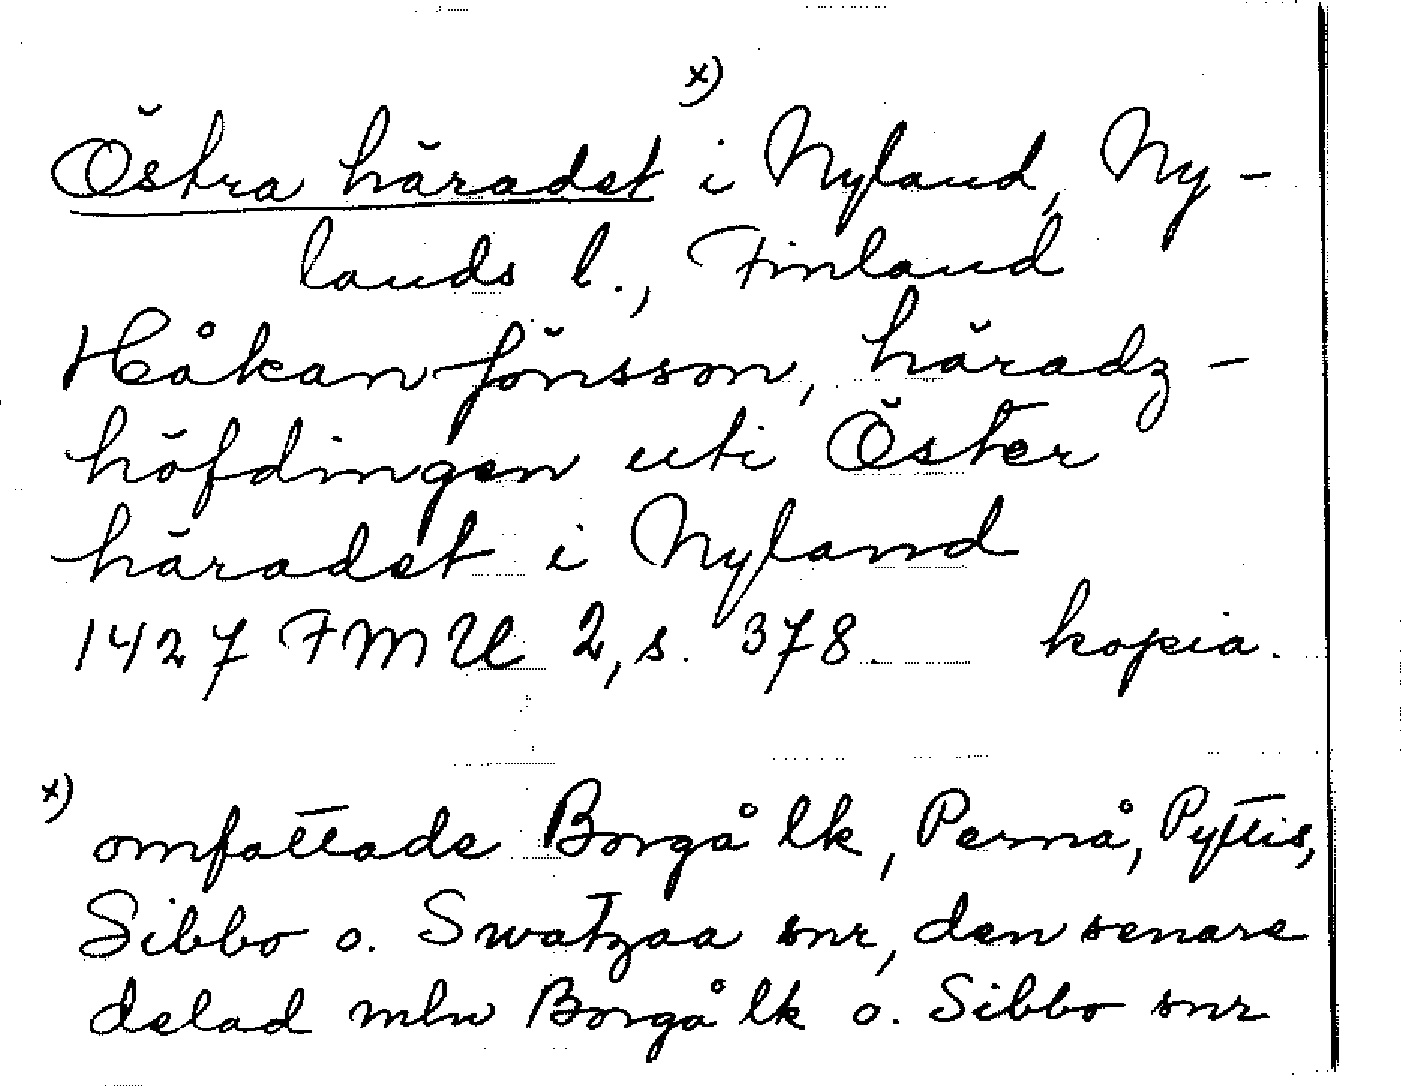 x)
Östra häradet i Nyland, Ny-
lands l., Finland
Håkan Jönsson, häradz-
höfdingen uti Öster
häradet i Nyland
1427 FMU 2, s. 378. kopia.
x)
omfattade Borgå lk, Pernå, Pyttis,
Sibbo o. Swatzaa snr, den senare
delad mln Borgå lk o. Sibbo snr